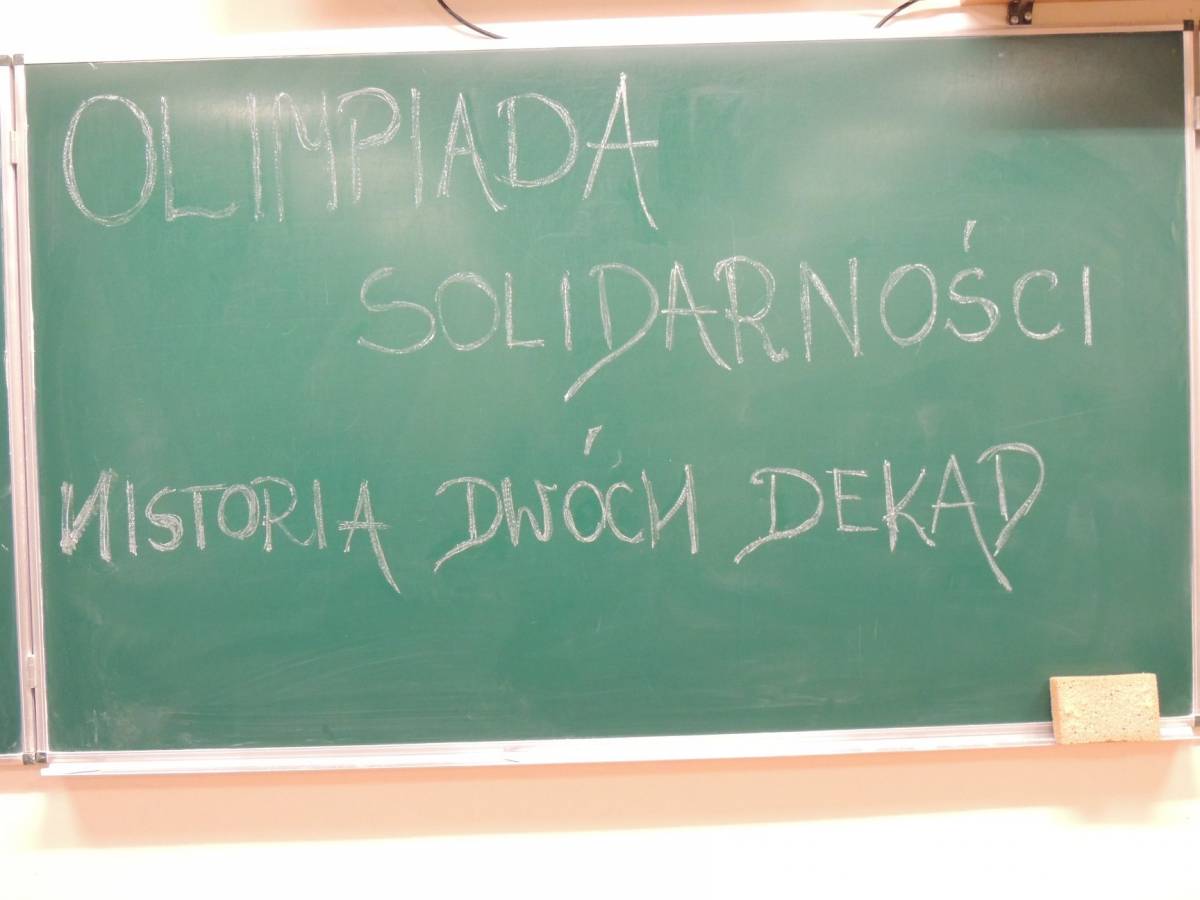 OLIMPIADA
SOLIDARNOŚCI
HISTORIA DWÓCH DEKAD